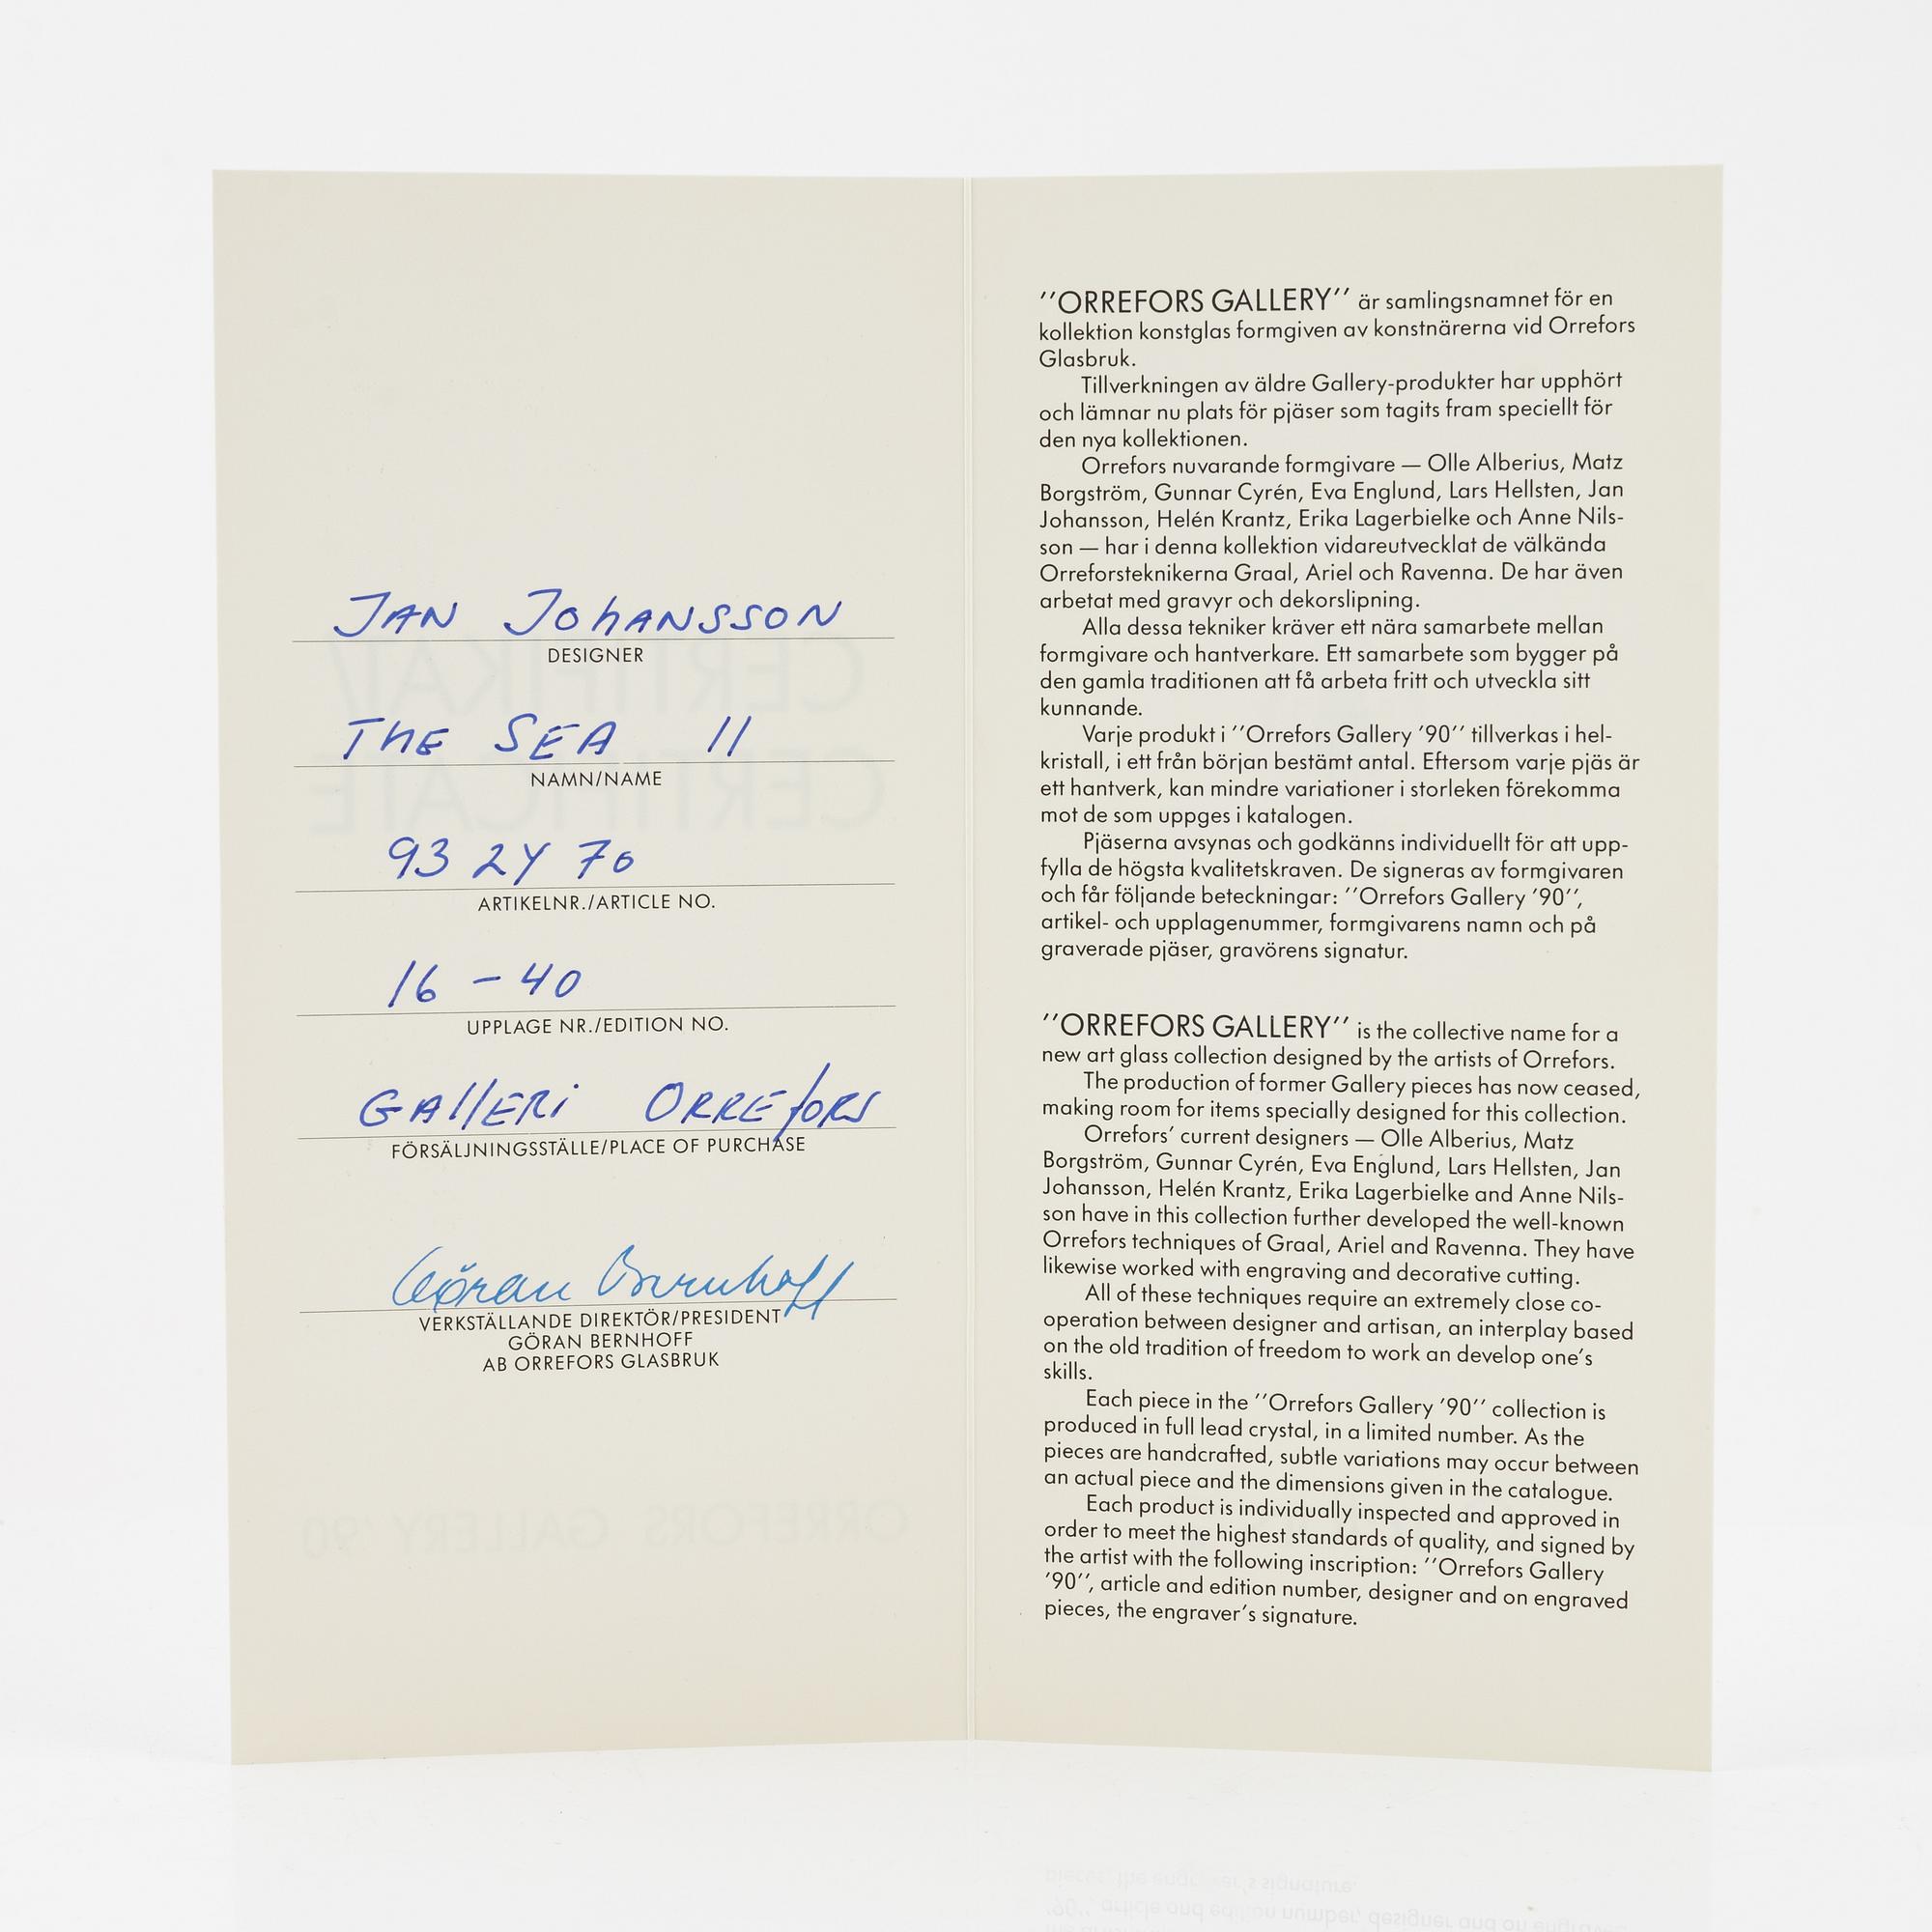 JAN JOHANSSON
DESIGNER
THE SEA II
NAMN/NAME
93 24 70
ARTIKELNR./ARTICLE NO.
16 - 40
UPPLAGE NR./EDITION NO.
GALLERI ORREFORS
FÖRSÄLJNINGSSTÄLLE/PLACE OF PURCHASE
Göran Bernhoff
VERKSTÄLLANDE DIREKTÖR/PRESIDENT
GÖRAN BERNHOFF
AB ORREFORS GLASBRUK
''ORREFORS GALLERY'' är samlingsnamnet för en
kollektion konstglas formgiven av konstnärerna vid Orrefors
Glasbruk.
Tillverkningen av äldre Gallery-produkter har upphört
och lämnar nu plats för pjäser som tagits fram speciellt för
den nya kollektionen.
Orrefors nuvarande formgivare — Olle Alberius, Matz
Borgström, Gunnar Cyrén, Eva Englund, Lars Hellsten, Jan
Johansson, Helén Krantz, Erika Lagerbielke och Anne Nils-
son — har i denna kollektion vidareutvecklat de välkända
Orreforsteknikerna Graal, Ariel och Ravenna. De har även
arbetat med gravyr och dekorslipning.
Alla dessa tekniker kräver ett nära samarbete mellan
formgivare och hantverkare. Ett samarbete som bygger på
den gamla traditionen att få arbeta fritt och utveckla sitt
kunnande.
Varje produkt i ''Orrefors Gallery '90'' tillverkas i hel-
kristall, i ett från början bestämt antal. Eftersom varje pjäs är
ett hantverk, kan mindre variationer i storleken förekomma
mot de som uppges i katalogen.
Pjäserna avsynas och godkänns individuellt för att upp-
fylla de högsta kvalitetskraven. De signeras av formgivaren
och får följande beteckningar: ''Orrefors Gallery '90'',
artikel- och upplagenummer, formgivarens namn och på
graverade pjäser, gravörens signatur.
''ORREFORS GALLERY'' is the collective name for a
new art glass collection designed by the artists of Orrefors.
The production of former Gallery pieces has now ceased,
making room for items specially designed for this collection.
Orrefors' current designers — Olle Alberius, Matz
Borgström, Gunnar Cyrén, Eva Englund, Lars Hellsten, Jan
Johansson, Helén Krantz, Erika Lagerbielke and Anne Nils-
son have in this collection further developed the well-known
Orrefors techniques of Graal, Ariel and Ravenna. They have
likewise worked with engraving and decorative cutting.
All of these techniques require an extremely close co-
operation between designer and artisan, an interplay based
on the old tradition of freedom to work an develop one's
skills.
Each piece in the ''Orrefors Gallery '90'' collection is
produced in full lead crystal, in a limited number. As the
pieces are handcrafted, subtle variations may occur between
an actual piece and the dimensions given in the catalogue.
Each product is individually inspected and approved in
order to meet the highest standards of quality, and signed by
the artist with the following inscription: ''Orrefors Gallery
'90'', article and edition number, designer and on engraved
pieces, the engraver's signature.